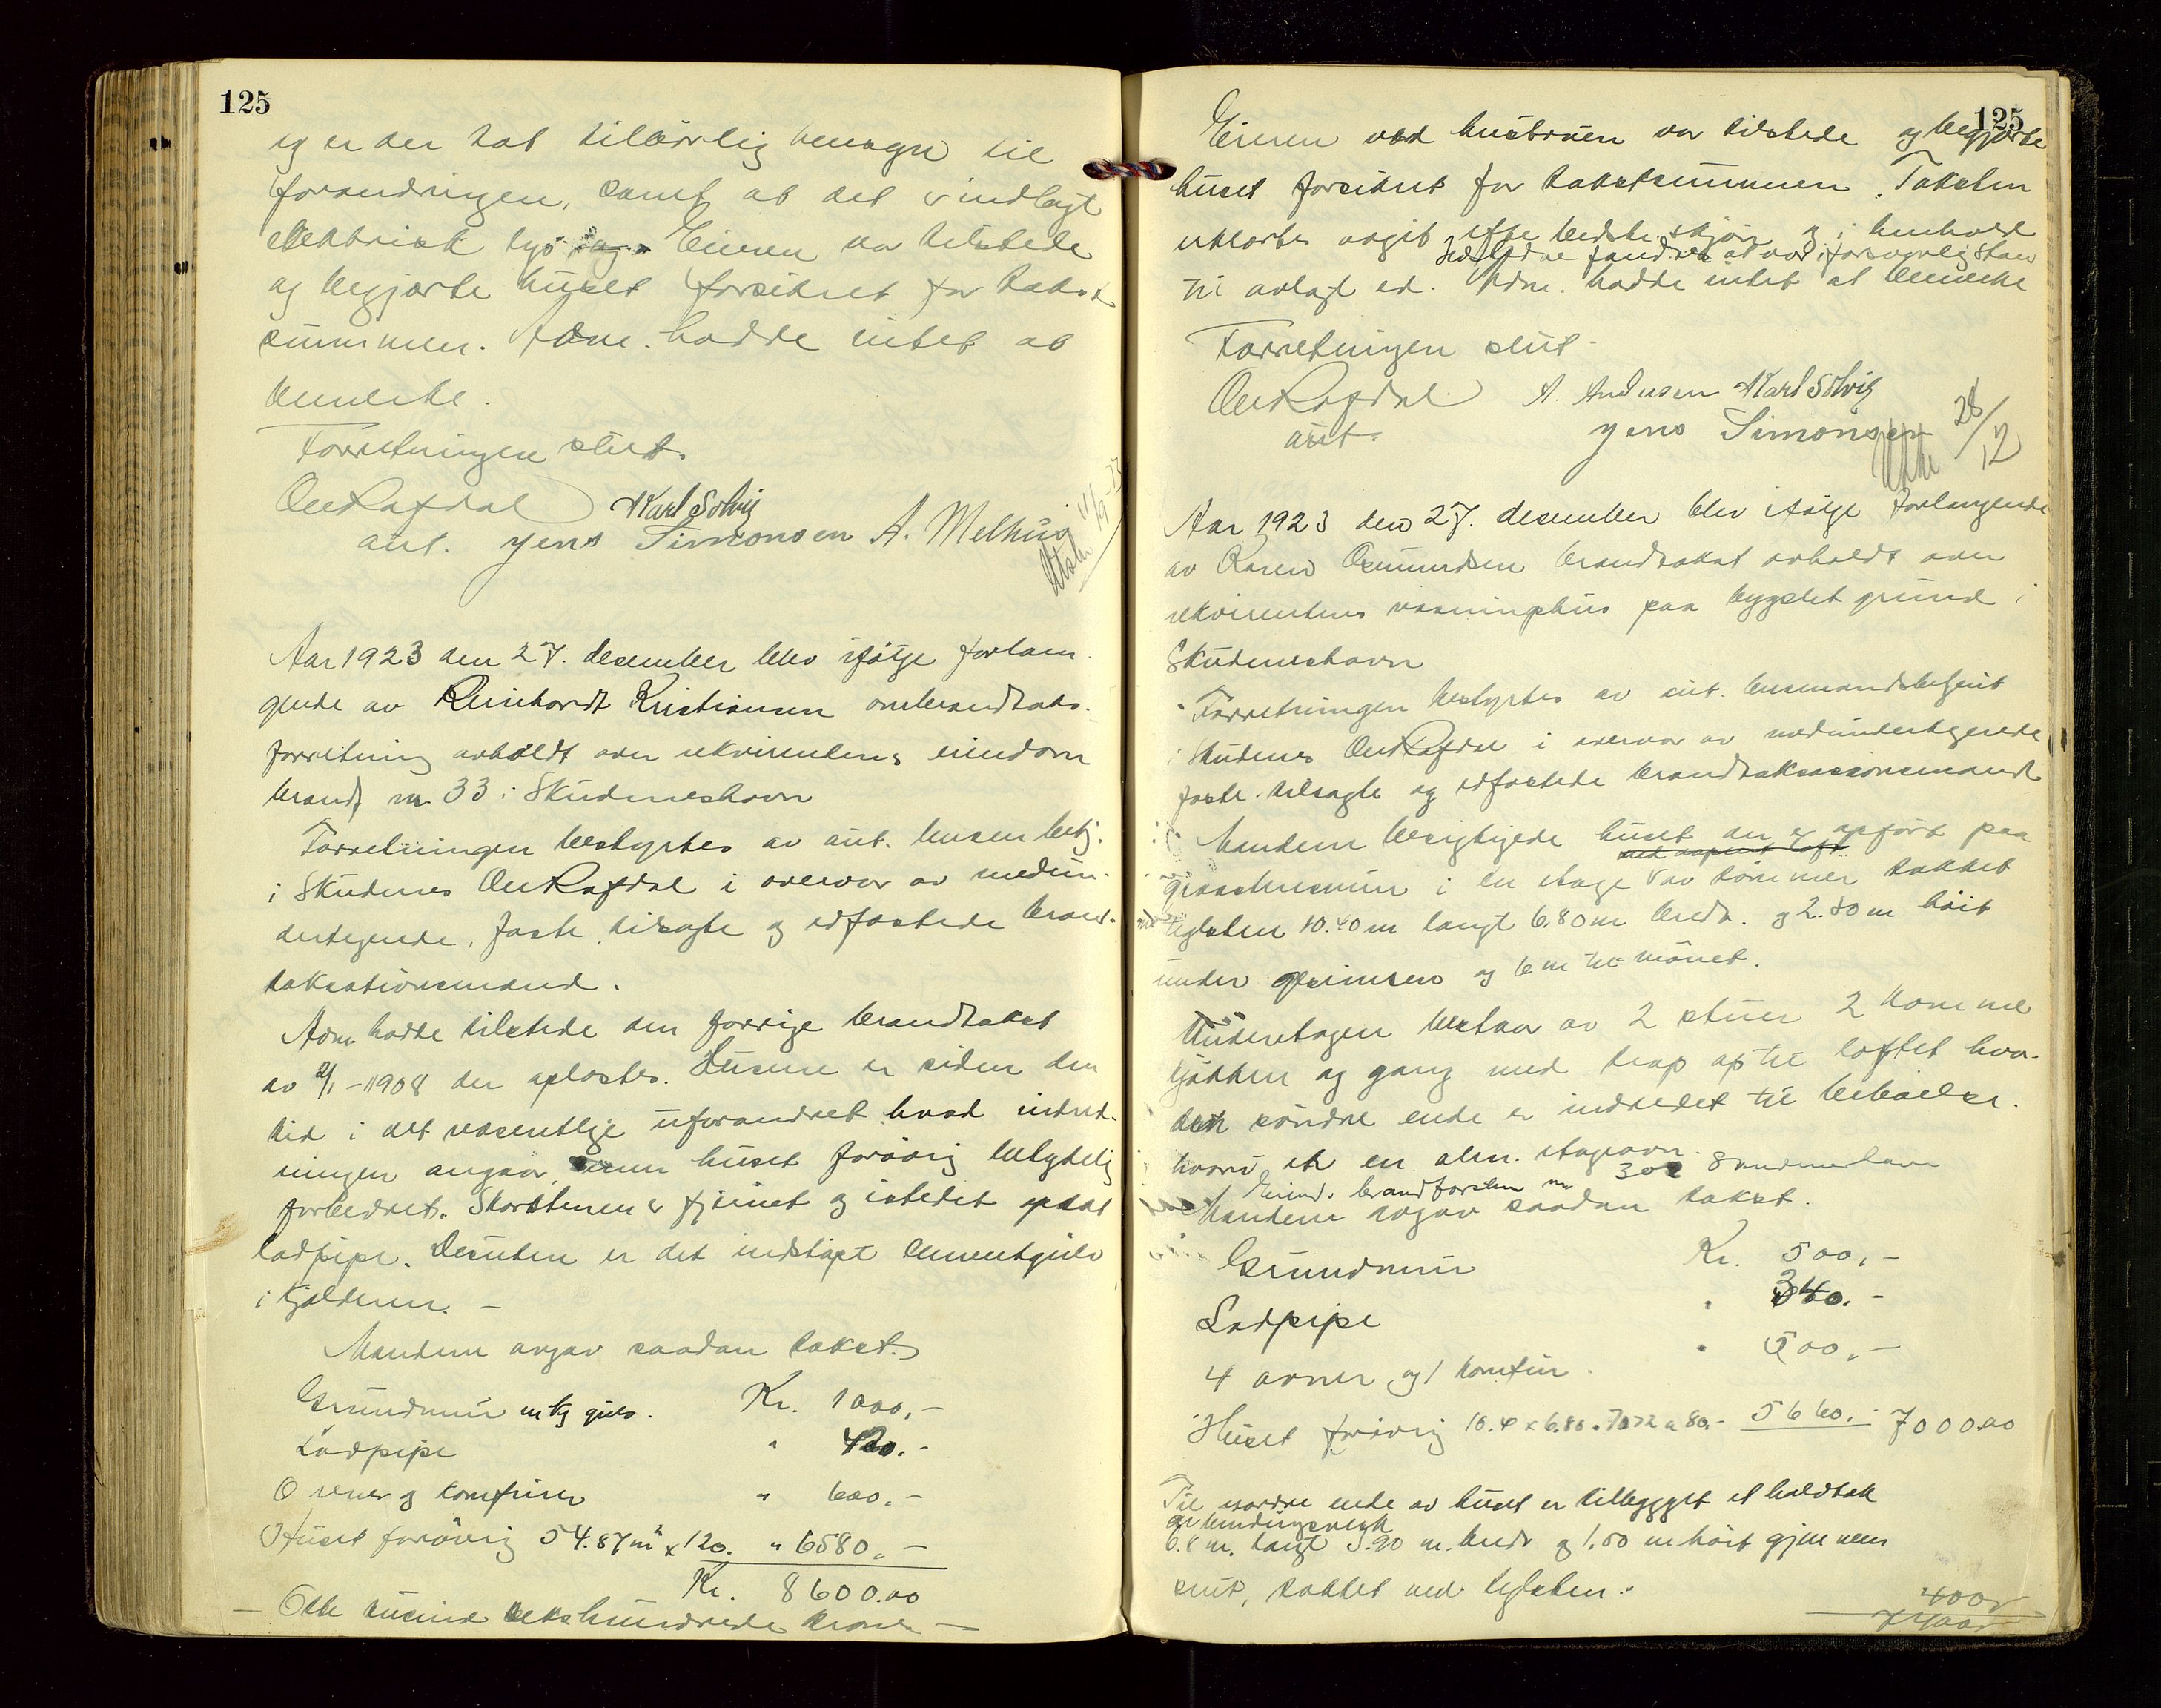 125
og er der tat tilbørlig hensyn til
forandringen, samt at det er indlagt
elektrisk lys. Eieren var tilstede
og begjærte huset forsikret for takst
summen. Adm. hadde intet at
bemerke.
Forretningen slut.
Ole Rafdal Karl Solvig
aut. Jens Simonsen A. Melhus
Utskr 11/9-23
Aar 1923 den 27. desember blev ifølge forlan
gende av Reinhardt Kristiansen ombrandtakst.
forretning avholdt over rekvirentens eiendom
brandf nr 33 i Skudeneshavn
Forretningen bestyrtes av aut. lensm betj.
i Skudenes Ole Rafdal i overvær av medun-
dertegnede, faste tilsagte og edfæstede brand-
taksationsmænd.
Adm hadde tilstede den forrige brandtakst
av 2/1-1908 der oplæstes. Husene er siden den
tid i det væsentlige uforandret hvad indred-
ningen angaar, men huset forøvrig betydelig
forbedret. Skorstenen er fjernet og istedet opsat
lodpipe. Desuten er det indstøpt cementgulv
i kjelderen. -
Mændene avgav saadan takst.
Grundmur m kj gulv. Kr. 1000,-
Lodpipe " 420.-
Ovner og komfurer " 600,-
Huset forøvrig 54.87 m² x 120. " 6580,-
Kr. 8600.00
- Otte tusind sekshundrede kroner -
125
Eieren ved husbruen var tilstede og begjærte
huset forsikret for takstsummen. Taksten
erklærtes avgit efter bedste skjøn og i henhold
Ildstedene fandtes at være i forsvarlig stan
til avlagt ed. Adm. hadde intet at bemerke
Forretningen slut -
Ole Rafdal A. Andersen Karl Solvig
aut. Jens Simonsen
Utskr 28/12
Aar 1923 den 27. desember blev ifølge forlangende
av Karen Osmundsen brandtakst avholdt over
rekvirentens vaaningshus paa bygslet grund i
Skudeneshavn
Forretningen bestyrtes av aut. lensmandsbetjent
i Skudenes Ole Rafdal i overvær av medundertegnede
faste tilsagte og edfæstede brandtaksasionsmænd
Mændene besigtigede huset der er opført paa
med aapent loft
graastensmur i en etage av tømmer takket
med teglsten 10.40 m langt 6.80 m bredt. og 2.80 m høit
under gesimsen og 6 m til mønet.
Underetagen bestaar av 2 stuer 2 kammer
kjøkken og gang med trap op til loftet hvor-
den søndre ende er indredet til beboelse.
hvori er en alm. etageovn.
Eiend. brandforsikr nr 302 Skudeneshavn
Mændene avgav saadan takst.
Grundmur Kr. 500,-
Lodpipe " 340.-
4 ovner og 1 komfur " 500,-
Huset forøvrig 10.4 x 6.80 = 70.72 a 80.- 5660.- 7000.00
Til nordre ende av huset er tilbygget et halvtak
av bindingsverk
6.8 m. langt 3.90 m. bredt og 1.80 m høit gjennem
snit, takket med teglsten.
400,-
7400,-